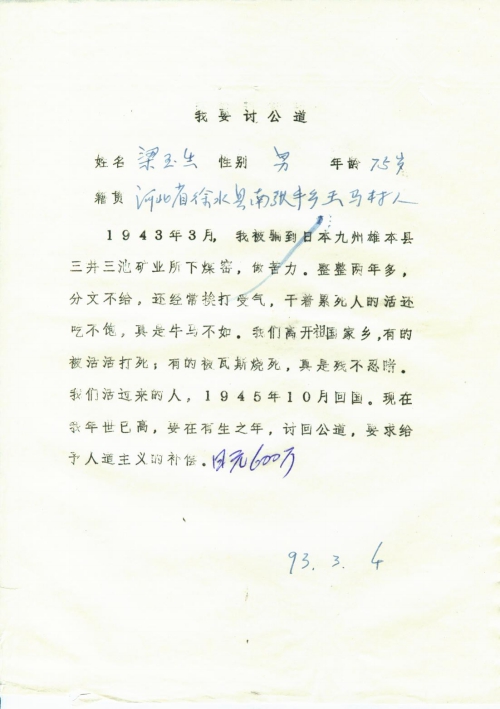 我要讨公道
姓名 梁玉生 性别 男 年龄 75岁
籍贯 河北省徐水县南张丰乡王马村人
1943年3月，我被骗到日本九州雄本县
三井三池矿业所下煤窑，做苦力。整整两年多，
分文不给，还经常挨打受气，干着累死人的活还
吃不饱，真是牛马不如。我们离开祖国家乡，有的
被活活打死；有的被瓦斯烧死，真是残不忍睹。
我们活过来的人，1945年10月回国。现在
我年世已高，要在有生之年，讨回公道，要求给
予人道主义的补偿。日元600万
93.3.4